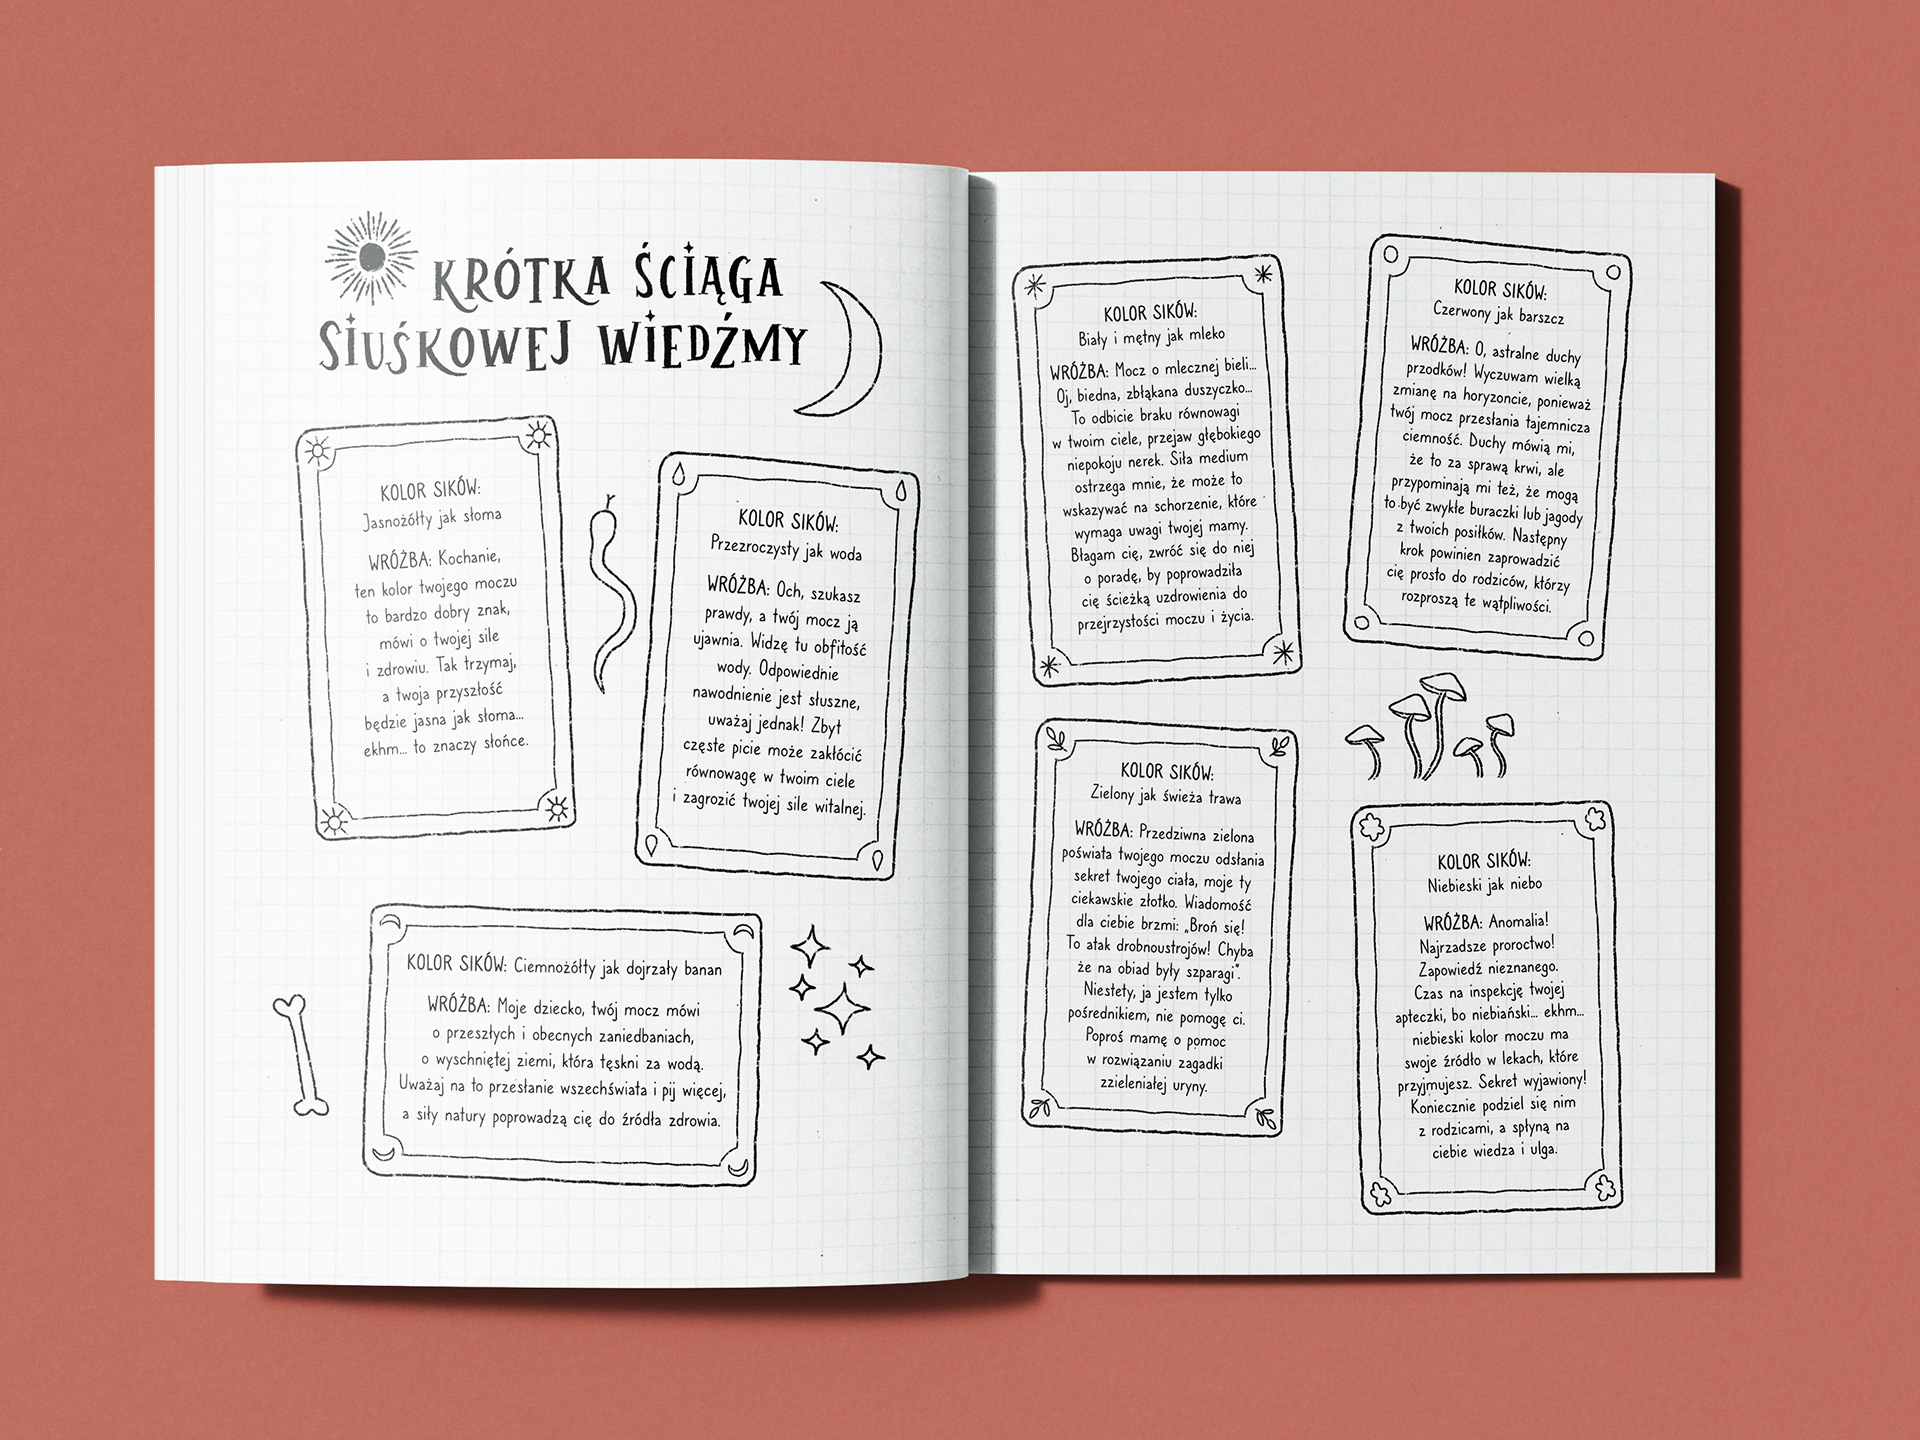 KRÓTKA ŚCIĄGA
SIUŚKOWEJ WIEDŹMY
KOLOR SIKÓW:
Jasnożółty jak słoma
WRÓŻBA: Kochanie,
ten kolor twojego moczu
to bardzo dobry znak,
mówi o twojej sile
i zdrowiu. Tak trzymaj,
a twoja przyszłość
będzie jasna jak słoma...
ekhm... to znaczy słońce.
KOLOR SIKÓW:
Przezroczysty jak woda
WRÓŻBA: Och, szukasz
prawdy, a twój mocz ją
ujawnia. Widzę tu obfitość
wody. Odpowiednie
nawodnienie jest słuszne,
uważaj jednak! Zbyt
częste picie może zakłócić
równowagę w twoim ciele
i zagrozić twojej sile witalnej.
KOLOR SIKÓW: Ciemnożółty jak dojrzały banan
WRÓŻBA: Moje dziecko, twój mocz mówi
o przeszłych i obecnych zaniedbaniach,
o wyschniętej ziemi, która tęskni za wodą.
Uważaj na to przesłanie wszechświata i pij więcej,
a siły natury poprowadzą cię do źródła zdrowia.
KOLOR SIKÓW:
Biały i mętny jak mleko
WRÓŻBA: Mocz o mlecznej bieli...
Oj, biedna, zbłąkana duszyczko...
To odbicie braku równowagi
w twoim ciele, przejaw głębokiego
niepokoju nerek. Siła medium
ostrzega mnie, że może to
wskazywać na schorzenie, które
wymaga uwagi twojej mamy.
Błagam cię, zwróć się do niej
o poradę, by poprowadziła
cię ścieżką uzdrowienia do
przejrzystości moczu i życia.
KOLOR SIKÓW:
Czerwony jak barszcz
WRÓŻBA: O, astralne duchy
przodków! Wyczuwam wielką
zmianę na horyzoncie, ponieważ
twój mocz przesłania tajemnicza
ciemność. Duchy mówią mi,
że to za sprawą krwi, ale
przypominają mi też, że mogą
to być zwykłe buraczki lub jagody
z twoich posiłków. Następny
krok powinien zaprowadzić
cię prosto do rodziców, którzy
rozproszą te wątpliwości.
KOLOR SIKÓW:
Zielony jak świeża trawa
WRÓŻBA: Przedziwna zielona
poświata twojego moczu odsłania
sekret twojego ciała, moje ty
ciekawskie złotko. Wiadomość
dla ciebie brzmi: „Broń się!
To atak drobnoustrojów! Chyba
że na obiad były szparagi”.
Niestety, ja jestem tylko
pośrednikiem, nie pomogę ci.
Poproś mamę o pomoc
w rozwiązaniu zagadki
zzieleniałej uryny.
KOLOR SIKÓW:
Niebieski jak niebo
WRÓŻBA: Anomalia!
Najrzadsze proroctwo!
Zapowiedź nieznanego.
Czas na inspekcję twojej
apteczki, bo niebiański... ekhm...
niebieski kolor moczu ma
swoje źródło w lekach, które
przyjmujesz. Sekret wyjawiony!
Koniecznie podziel się nim
z rodzicami, a spłyną na
ciebie wiedza i ulga.